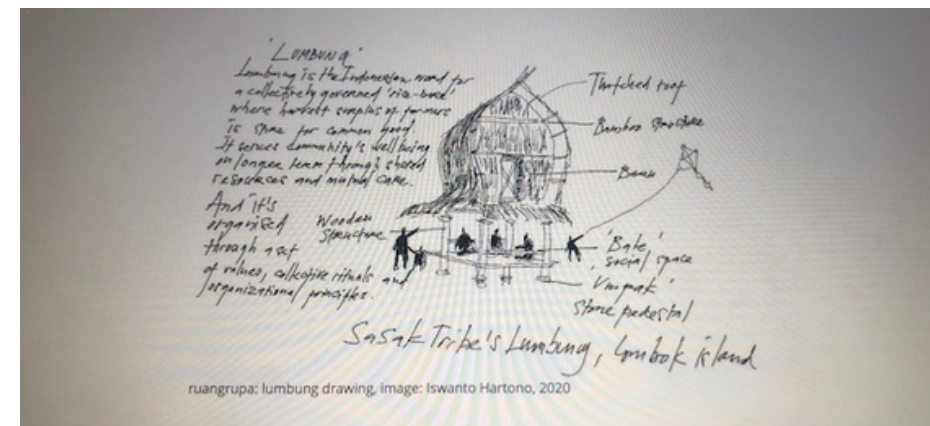 'LUMBUNG'
Lumbung is the Indonesian word for
a collectively governed 'rice-barn'
where harvest surplus of farmers
is store for common good.
It serves community's well being
on longer term through shared
resources and mutual care.
And it's
organised
through a set
of values, collective rituals and
organizational principles.
Thatched roof
Bamboo structure
Barn
Wooden
Structure
'Bale'
social space
Umpak
Stone pedestal
Sasak Tribe's Lumbung, Lombok island
ruangrupa: lumbung drawing, image: Iswanto Hartono, 2020